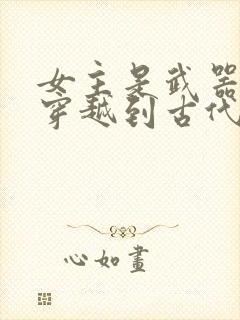 女主是武器
穿越到古代
心如畫